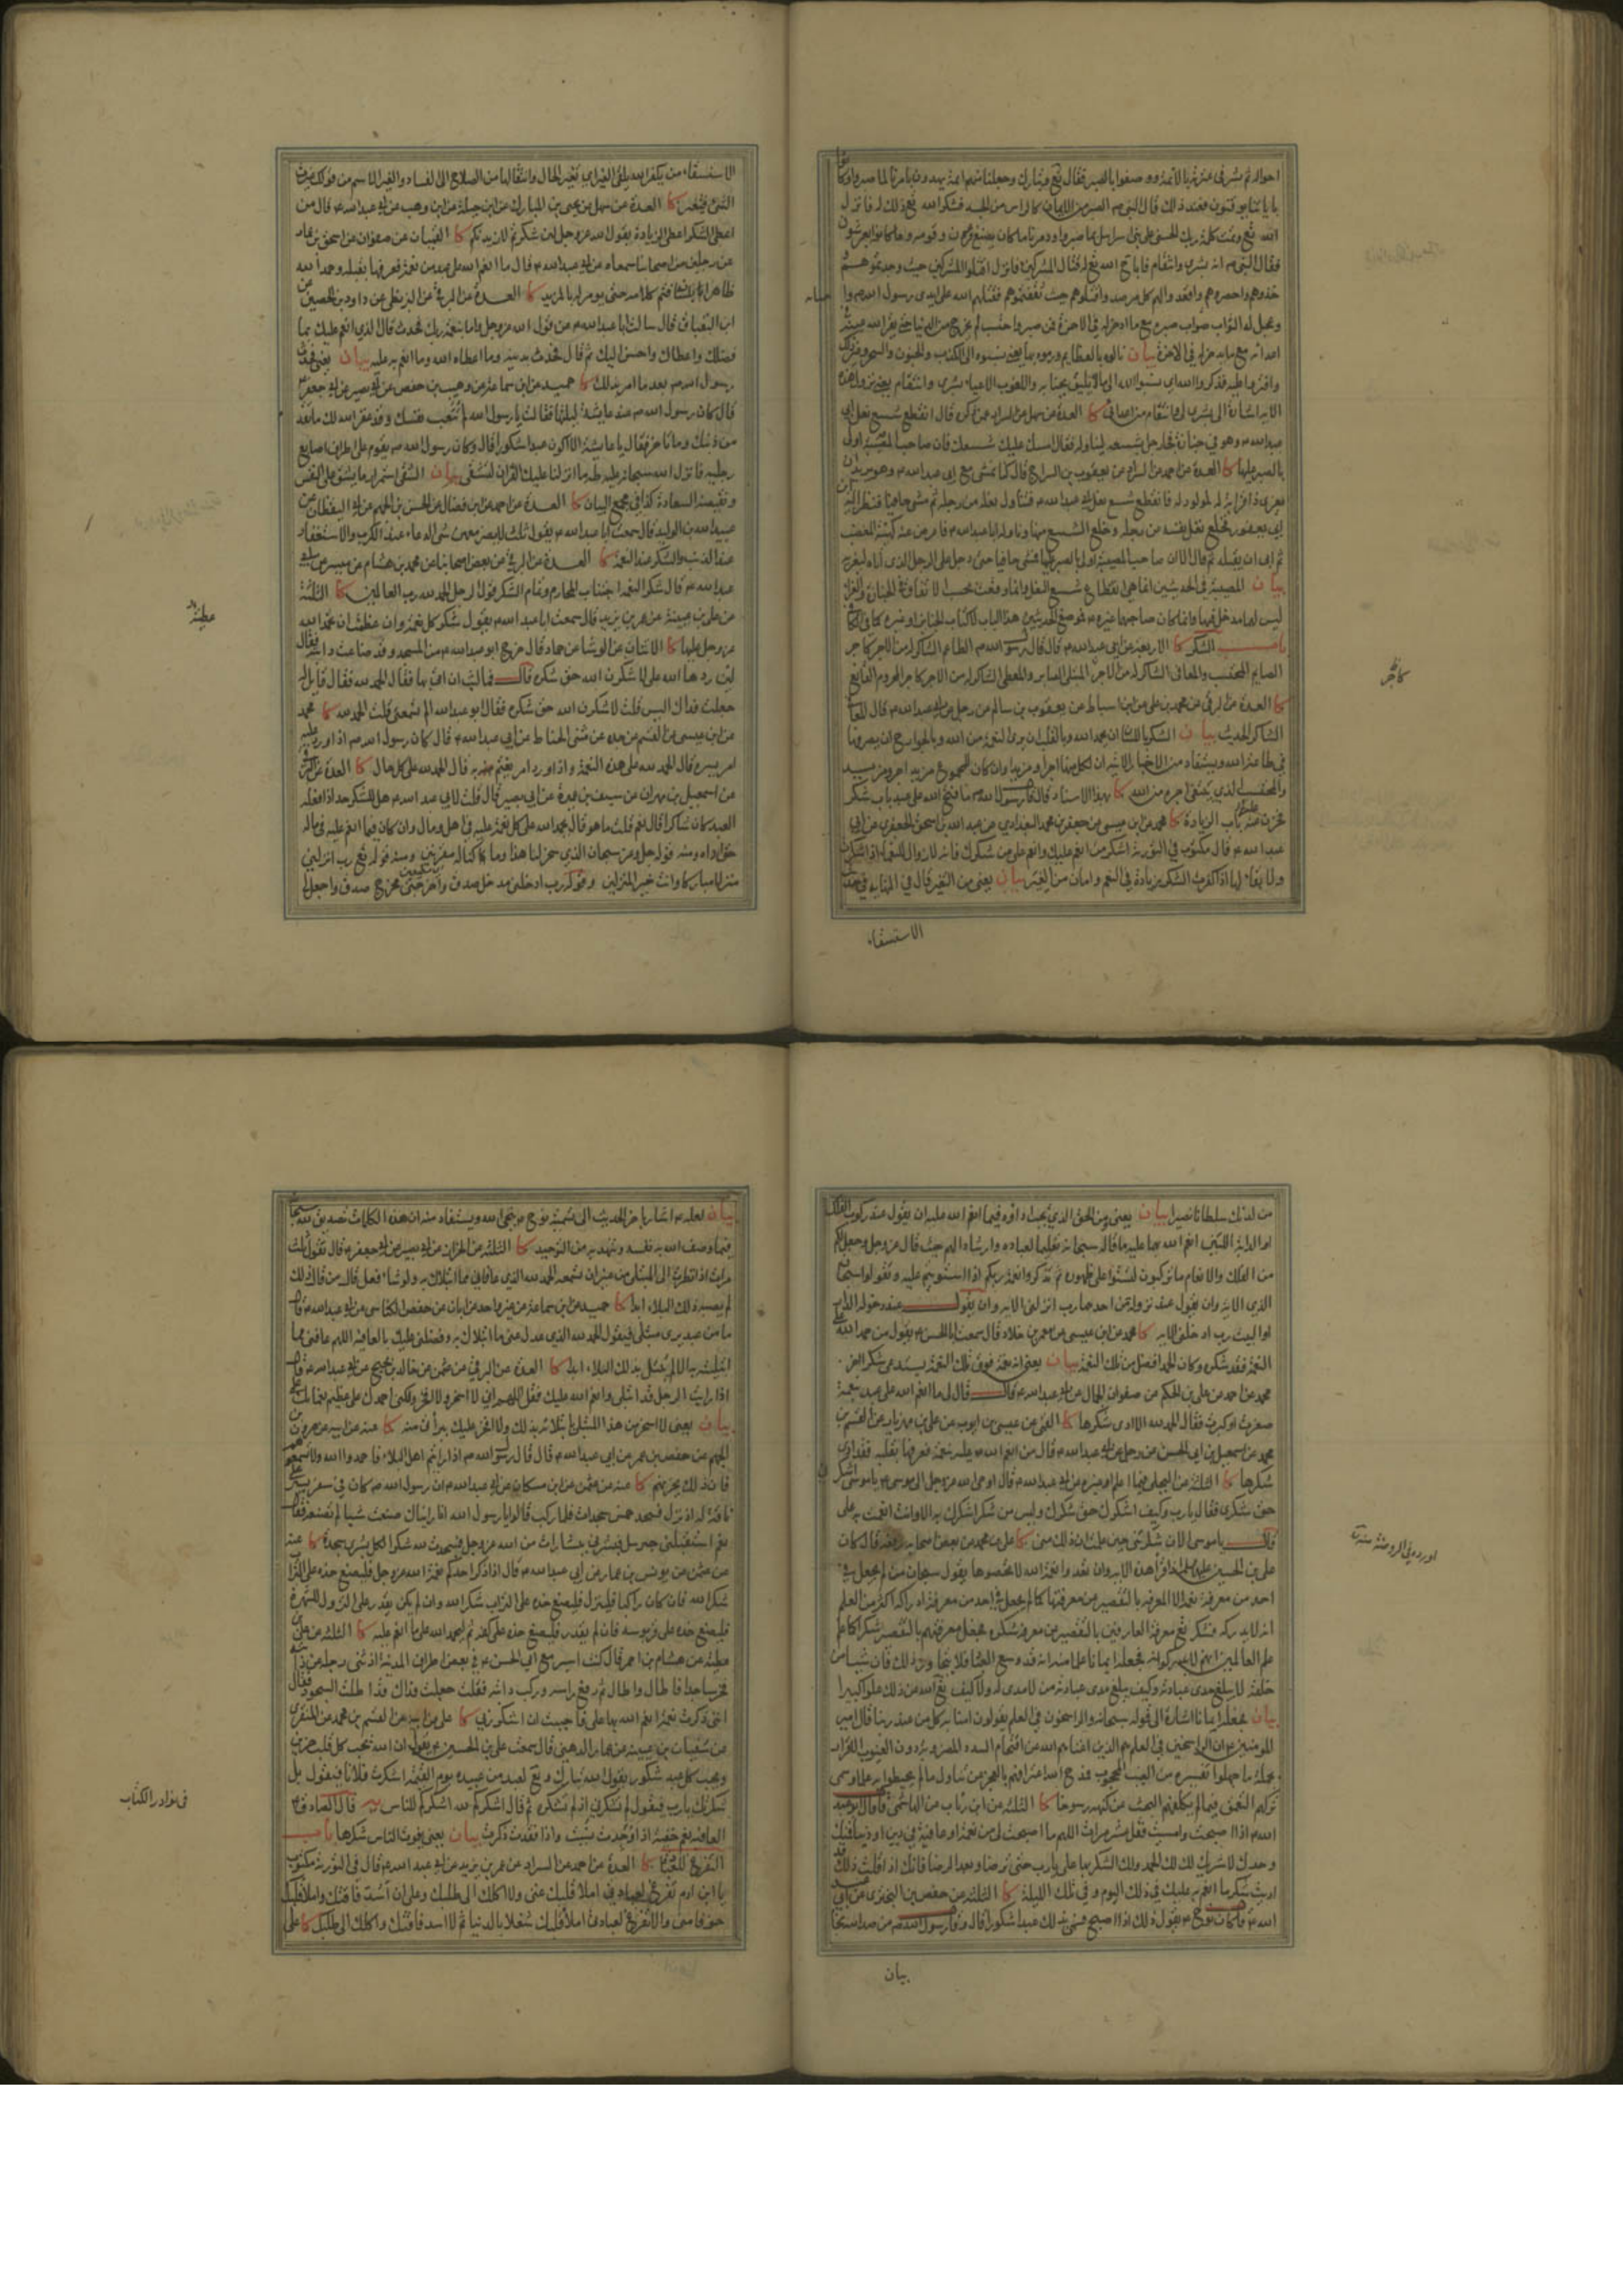 احواله ثم بشر في عترته بالأئمة ووصفوا بالصبر فقال تع وتبارك وجعلنا منهم ائمة يهدون بامرنا لما صبروا وكانوا
باياتنا يوقنون فعند ذلك قال النبي ص الصبر من الايمان كالراس من الجسد فشكر الله تع ذلك له فانزل
الله تع وتمت كلمة ربك الحسنى على بني اسراييل بما صبروا ودمرنا ما كان يصنع فرعون وقومه وما كانوا يعرشون
فقال النبي ص انه بشرى وانتقام فاباح الله تع له قتال المشركين فانزل اقتلوا المشركين حيث وجدتموهم
خذوهم واحصروهم واقعدوا لهم كل مرصد واقتلوهم حيث ثقفتموهم فقتلهم الله على ايدي رسول الله ص وا
وعجل له الثواب ثواب صبره مع ما ادخر له في الاخرة فمن صبر واحتسب لم يخرج من الدنيا حتى يقر الله عينه
اعدائه مع ما يدخر له في الاخرة بيان نالوه بالعظايم ورموه بها يعني نسبوه الى الكذب والجنون والسحر وغير ذلك
الاية اشارة الى بشرى لي وانتقام من اعدائي كا العدة عن سهل عن السراد عمن ذكره قال انقطع شسع نعل ابي
عبدالله ع وهو في جنازة فجاء رجل بشسعه ليناوله فقال امسك عليك شسعك فان صاحب المصيبة اولى
بالصبر عليها كا العدة عن احمد عن السراد عن يعقوب بن السراج قال كنا نمشي مع ابي عبدالله ع وهو يريد ان
يعزى ذا قرابة له بمولود له فانقطع شسع نعل ابي عبدالله ع فتناول نعله من رجله ثم مشى حافيا فنظر اليه ابن
ابي يعفور فخلع نعل نفسه من رجله وخلع الشسع منها وناوله ابا عبدالله ع فاعرض عنه كهيئة المغضب
ثم ابى ان يقبله ثم قال الا ان صاحب المصيبة اولى بالصبر عليها فمشى حافيا حتى دخل على الرجل الذي اتاه ليعزيه
بيان المصيبة في الحديثين انما هي انقطاع شسع النعل
باب الشكر كا الاربعة عن ابي عبدالله ع قال قال رسول الله ص الطاعم الشاكر له من الاجر كاجر
الصايم المحتسب والمعافى الشاكر له من الاجر كاجر المبتلى الصابر والمعطى الشاكر له من الاجر كاجر المحروم القانع
كا العدة عن البرقي عن محمد بن علي عن ابن اسباط عن يعقوب بن سالم عن رجل عن ابي عبدالله ع قال المعافى
الشاكر الحديث بيان الشكر باللسان ان يحمد الله وبالقلب ان يرى النعمة من الله وبالجوارح ان يصرفها
في طاعة الله ويستفاد من الاخبار
والمحتسب الذي يبتغي اجره من الله كا بهذا الاسناد قال قال رسول الله ص ما فتح الله على عبد باب شكر
فخزن عنه باب الزيادة كا محمد عن ابن عيسى عن جعفر بن محمد البغدادي عن عبدالله بن اسحق الجعفري عن ابي
عبدالله ع قال مكتوب في التورية اشكر من انعم عليك وانعم على من شكرك فانه لا زوال للنعماء اذا شكرت
ولا بقاء لها اذا كفرت الشكر زيادة في النعم وامان من الغير بيان يعني من التغير قال في النهايه في حديث
الاستسقاء
كاجر
الاستسقاء من يكفر الله يلقى الغير اي تغير الحال وانتقالها من الصلاح الى الفساد والغير الاسم من قولك غيرت
الشئ فتغير كا العدة عن سهل عن يحيى بن المبارك عن ابن جبلة عن ابن وهب عن ابي عبدالله ع قال من
اعطى الشكر اعطى الزيادة يقول الله عز وجل لئن شكرتم لازيدنكم كا القميان عن صفوان عن اسحق بن عمار
عن رجلين من اصحابنا سمعاه عن ابي عبدالله ع قال ما انعم الله على عبد من نعمة فعرفها بقلبه وحمد الله
ظاهرا بلسانه فتم كلامه حتى يؤمر له بالمزيد كا العدة عن البرقي عن البزنطي عن داود بن الحصين عن
ابن البقباق قال سالت ابا عبدالله ع عن قول الله عز وجل واما بنعمة ربك فحدث قال الذي انعم عليك بما
فضلك واعطاك واحسن اليك ثم قال فحدث بدينه وما اعطاه الله وما انعم به عليه بيان يعني فحدث
رسول الله ص بعد ما امر بذلك كا حميد عن ابن سماعة عن وهيب بن حفص عن ابي بصير عن ابي جعفر ع
قال كان رسول الله ص عند عايشة ليلتها فقالت يا رسول الله لم تتعب نفسك وقد غفر الله لك ما تقدم
من ذنبك وما تاخر فقال يا عايشة الا اكون عبدا شكورا قال وكان رسول الله ص يقوم على اطراف اصابع
رجليه فانزل الله سبحانه عليه طه ما انزلنا عليك القران لتشقى بيان الشقى استمرار ما يشق على النفس
ونقيضه السعادة كذا في مجمع البيان كا العدة عن احمد عن ابن فضال عن الحسن بن الجهم عن ابي اليقظان عن
عبيدالله بن الوليد قال سمعت ابا عبدالله ع يقول ثلث لا يضر معهن شئ الدعاء عند الكرب والاستغفار
عند الذنب والشكر عند النعمة كا العدة عن البرقي عن بعض اصحابنا عن محمد بن هشام عن ميسر عن ابي
عبدالله ع قال شكر النعمة اجتناب المحارم وتمام الشكر قول الرجل الحمد لله رب العالمين كا الثلثة
عن علي بن عيينة عن عمر بن يزيد قال سمعت ابا عبدالله ع يقول شكر كل نعمة وان عظمت ان تحمد الله
عز وجل عليها كا الاثنان عن الوشا عن حماد قال خرج ابو عبدالله ع من المسجد وقد ضاعت دابته فقال
لئن ردها الله علي لاشكرن الله حق شكره قال فما لبث ان اتي بها فقال الحمد لله فقال قايل له
جعلت فداك اليس قلت لاشكرن الله حق شكره فقال ابو عبدالله الم تسمعني قلت الحمد لله كا محمد
عن ابن عيسى عن القسم عن جده عن مثنى الحناط عن ابي عبدالله ع قال كان رسول الله ص اذا ورد عليه
امر يسره قال الحمد لله على هذه النعمة واذا ورد امر يغتم به قال الحمد لله على كل حال كا العدة عن البرقي
عن اسمعيل بن مهران عن سيف بن عميرة عن ابي بصير قال قلت لابي عبدالله ع هل للشكر حد اذا فعله
العبد كان شاكرا قال نعم قلت ما هو قال يحمد الله على كل نعمة عليه في اهل ومال وان كان فيما انعم عليه في ماله
حق اداه ومنه قوله جل وعز سبحان الذي سخر لنا هذا وما كنا له مقرنين ومنه قوله تع رب انزلني
منزلا مباركا وانت خير المنزلين وقوله رب ادخلني مدخل صدق واخرجني مخرج صدق واجعل لي
عطية
من لدنك سلطانا نصيرا بيان يعني ومن الحق الذي يجب اداؤه فيما انعم الله عليه ان يقول عند ركوب الفلك
او الدابة اللتين انعم الله بهما عليه ما قاله سبحانه تعليما لعباده وارشادا لهم حيث قال عز وجل وجعل لكم
من الفلك والانعام ما تركبون لتستووا على ظهوره ثم تذكروا نعمة ربكم اذا استويتم عليه وتقولوا سبحان
الذي الاية وان يقول عند نزوله من احدهما رب انزلني الاية وان يقول عند دخوله الدار
او البيت رب ادخلني الاية كا محمد عن ابن عيسى عن معمر بن خلاد قال سمعت ابا الحسن ع يقول من حمد الله على
النعمة فقد شكره وكان الحمد افضل من تلك النعمة بيان يعني انه نعمة فوق تلك النعمة يستدعي شكرا اخر
محمد عن احمد عن علي بن الحكم عن صفوان الجمال عن ابي عبدالله ع قال قال لي ما انعم الله على عبد بنعمة
صغرت او كبرت فقال الحمد لله الا ادى شكرها كا القمي عن عيسى بن ايوب عن علي بن مهزيار عن القسم بن
محمد عن اسمعيل بن ابي الحسن عن رجل عن ابي عبدالله ع قال من انعم الله عليه نعمة فعرفها بقلبه فقد ادى
شكرها كا الثلثة عن البجلي فيما اعلم او غيره عن ابي عبدالله ع قال اوحى الله عز وجل الى موسى ع يا موسى اشكرني
حق شكري فقال يا رب وكيف اشكرك حق شكرك وليس من شكر اشكرك به الا وانت انعمت به علي
قال يا موسى الان شكرتني حين علمت ان ذلك مني كا علي بن محمد عن بعض اصحابه رفعه قال كان
علي بن الحسين عليهما السلام اذا قرأ هذه الاية وان تعدوا نعمة الله لا تحصوها يقول سبحان من لم يجعل في
احد من معرفة نعمه الا المعرفة بالتقصير عن معرفتها كما لم يجعل في احد من معرفة ادراكه اكثر من العلم
انه لا يدركه فشكر تع معرفة العارفين بالتقصير عن معرفة شكره فجعل معرفتهم بالتقصير شكرا كما علم
علم العالمين انهم لا يدركونه فجعله ايمانا علما منه انه قد وسع العباد فلا يتجاوز ذلك فان شيئا من
خلقه لا يبلغ مدى عبادته وكيف يبلغ مدى عبادته من لا مدى له ولا كيف تع الله عن ذلك علوا كبيرا
بيان فجعله ايمانا اشارة الى قوله سبحانه والراسخون في العلم يقولون امنا به كل من عند ربنا قال امير
المؤمنين ع ان الراسخين في العلم هم الذين اغناهم الله عن اقتحام السدد المضروبة دون الغيوب
بجملة ما جهلوا تفسيره من الغيب المحجوب فمدح الله اعترافهم بالعجز عن تناول ما لم يحيطوا به علما وسمى
تركهم التعمق فيما لم يكلفهم البحث عن كنهه رسوخا كا الثلثة عن ابن رئاب عن الهاشمي قال قال ابو عبد
الله ع اذا اصبحت وامسيت فقل عشر مرات اللهم ما اصبحت لي من نعمة او عافية في دين او دنيا فمنك
وحدك لا شريك لك لك الحمد ولك الشكر بها علي يا رب حتى ترضا وبعد الرضا فانك اذا قلت ذلك كنت قد
اديت شكر ما انعم به عليك في ذلك اليوم وفي تلك الليلة كا الثلثة عن حفص بن البختري عن ابي عبد
الله ع قال كان نوح ع يقول ذلك اذا اصبح فسمي بذلك عبدا شكورا قال وقال رسول الله ص من صدق الله نجا
بيان
اورده في الروضة
بيان لعله ع اشار باخر الحديث الى تسمية نوح ع بنجي الله ويستفاد منه ان هذه الكلمات تصديق لله سبحانه
فيما وصف الله به نفسه وشهد به من التوحيد كا الثلثة عن الخراز عن ابي بصير عن ابي جعفر ع قال تقول ثلث
مرات اذا نظرت الى المبتلى من غير ان تسمعه الحمد لله الذي عافاني مما ابتلاك به ولو شاء فعل قال من قال ذلك
لم يصبه ذلك البلاء ابدا كا حميد عن ابن سماعة عن غير واحد عن ابان عن حفص الكناسي عن ابي عبدالله ع قال
ما من عبد يرى مبتلى فيقول الحمد لله الذي عدل عني ما ابتلاك به وفضلني عليك بالعافية اللهم عافني مما
ابتليته به الا لم يبتل بذلك البلاء ابدا كا العدة عن البرقي عن عثمن عن خالد بن نجيح عن ابي عبدالله ع قال
اذا رايت الرجل قد ابتلي وانعم الله عليك فقل اللهم اني لا اسخر ولا افخر ولكني احمدك على عظيم نعمائك علي
بيان يعني لا اسخر من هذا المبتلى بابتلائه بذلك ولا افخر عليه ببرائتي منه كا عنه عن ابيه عن هرون بن
الجهم عن حفص بن عمر عن ابي عبدالله ع قال قال رسول الله ص اذا رايتم اهل البلاء فاحمدوا الله ولا تسمعوهم
فان ذلك يحزنهم كا عنه عن عثمن عن ابن مسكان عن ابي عبدالله ع ان رسول الله ص كان في سفر يسير على
ناقة له اذ نزل فسجد خمس سجدات فلما ركب قالوا يا رسول الله انا رايناك صنعت شيئا لم تصنعه فقال
نعم استقبلني جبرييل فبشرني ببشارات من الله عز وجل فسجدت لله شكرا لكل بشرى سجدة كا عنه
عن عثمن عن يونس بن عمار عن ابي عبدالله ع قال اذا ذكر احدكم نعمة الله عز وجل فليضع خده على التراب
شكرا لله فان كان راكبا فلينزل فليضع خده على التراب شكرا لله وان لم يكن يقدر على النزول للشهرة
فليضع خده على قربوسه فان لم يقدر فليضع خده على كفه ثم ليحمد الله على ما انعم عليه كا الثلثة عن علي بن
عطية عن هشام بن احمر قال كنت اسير مع ابي الحسن ع في بعض اطراف المدينة اذ ثنى رجله عن دابته
فخر ساجدا فاطال واطال ثم رفع راسه وركب دابته فقلت جعلت فداك قد اطلت السجود فقال
انني ذكرت نعمة انعم الله بها علي فاحببت ان اشكر ربي كا علي عن ابيه عن القسم بن محمد عن المنقري
عن سفيان بن عيينة عن عمار الدهني قال سمعت علي بن الحسين ع يقول ان الله يحب كل قلب حزين
ويحب كل عبد شكور يقول الله تبارك وتع لعبد من عبيده يوم القيمة اشكرت فلانا فيقول بل
شكرتك يا رب فيقول لم تشكرني اذ لم تشكره ثم قال اشكركم لله اشكركم للناس يه قال الصادق ع
العافية نعم خفية اذا وجدت نسيت واذا فقدت ذكرت بيان يعني يفوت الناس شكرها باب
التفرغ للعبادة كا العدة عن احمد عن السراد عن عمر بن يزيد عن ابي عبدالله ع قال في التورية مكتوب
يا ابن ادم تفرغ لعبادتي املا قلبك غنى ولا اكلك الى طلبك وعلي ان اسد فاقتك واملا قلبك
خوفا مني والا تفرغ لعبادتي املأ قلبك شغلا بالدنيا ثم لا اسد فاقتك واكلك الى طلبك كا علي
في نوادر الكتاب